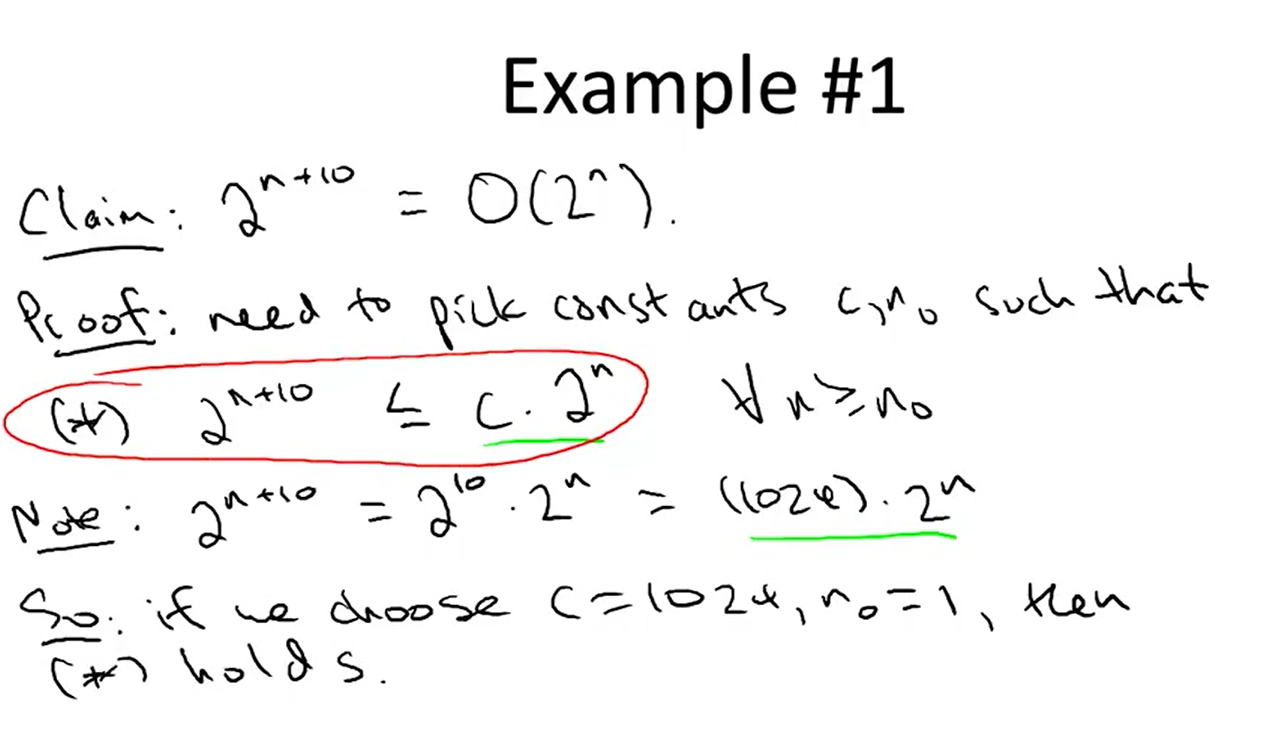 Example #1
Claim: 2^{n+10} = O(2^n).
Proof: need to pick constants c, n₀ such that
(*) 2^{n+10} ≤ c · 2^n ∀ n ≥ n₀
Note: 2^{n+10} = 2^{10} · 2^n = (1024) · 2^n
So: if we choose c = 1024, n₀ = 1, then
(*) holds.